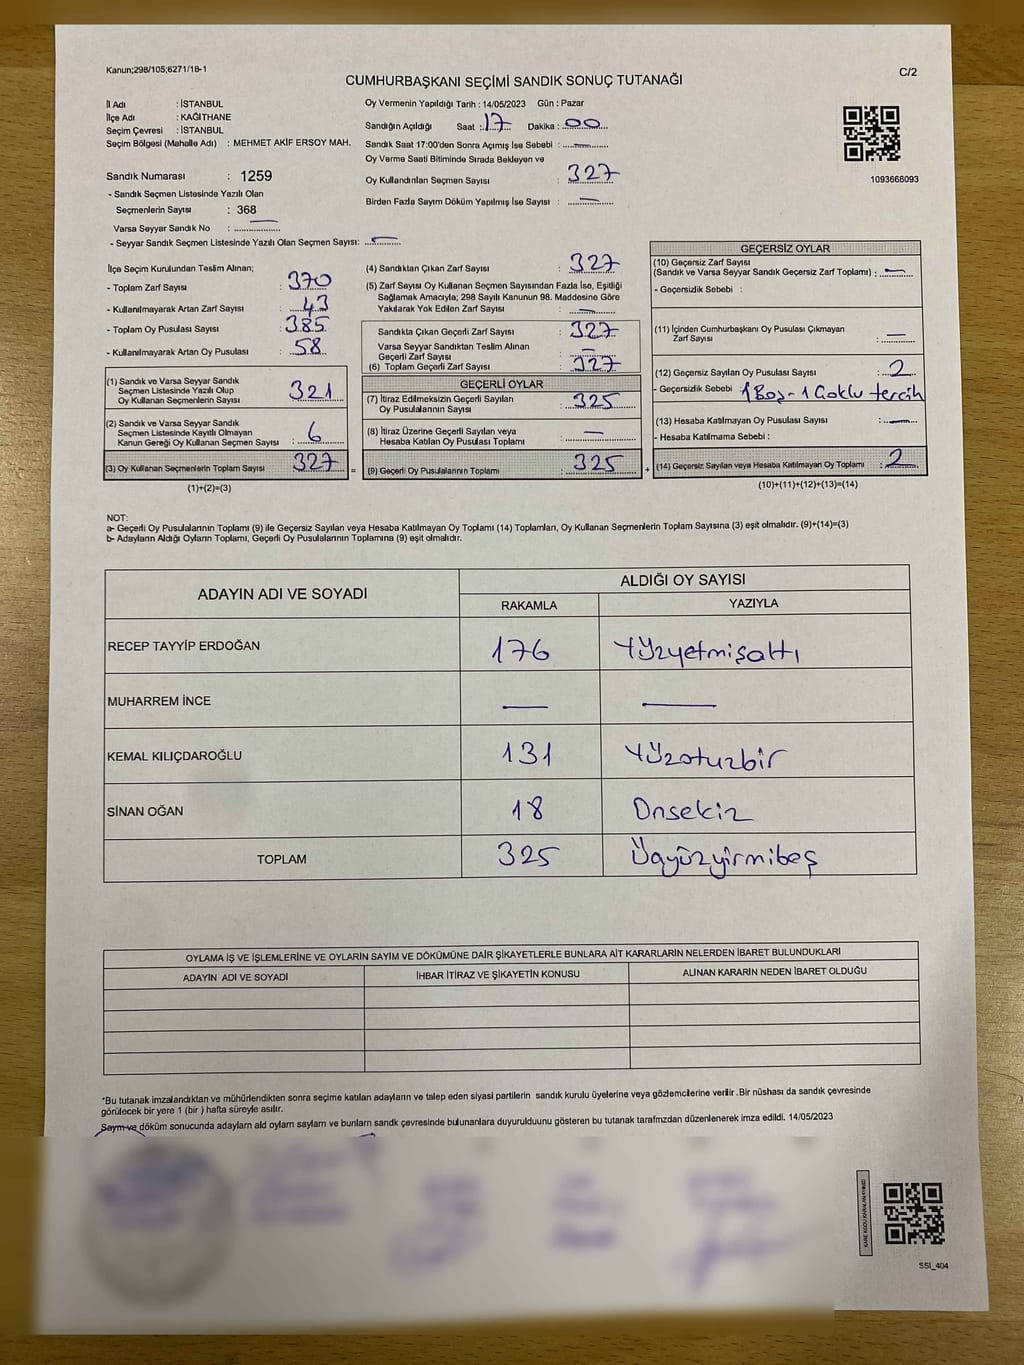 Kanun;298/105;6271/18-1
C/2
CUMHURBAŞKANI SEÇİMİ SANDIK SONUÇ TUTANAĞI
İl Adı : İSTANBUL
İlçe Adı : KAĞITHANE
Seçim Çevresi : İSTANBUL
Seçim Bölgesi (Mahalle Adı) : MEHMET AKİF ERSOY MAH.
Sandık Numarası : 1259
- Sandık Seçmen Listesinde Yazılı Olan
Seçmenlerin Sayısı : 368
Varsa Seyyar Sandık No : —
- Seyyar Sandık Seçmen Listesinde Yazılı Olan Seçmen Sayısı: —
Oy Vermenin Yapıldığı Tarih : 14/05/2023 Gün : Pazar
Sandığın Açıldığı Saat : 17 Dakika : 00
Sandık Saat 17:00'den Sonra Açımış İse Sebebi : —
Oy Verme Saati Bitiminde Sırada Bekleyen ve
Oy Kullandırılan Seçmen Sayısı : 327
Birden Fazla Sayım Döküm Yapılmış İse Sayısı : —
1093668093
İlçe Seçim Kurulundan Teslim Alınan;
- Toplam Zarf Sayısı : 370
- Kullanılmayarak Artan Zarf Sayısı : 43
- Toplam Oy Pusulası Sayısı : 385
- Kullanılmayarak Artan Oy Pusulası : 58
(1) Sandık ve Varsa Seyyar Sandık
Seçmen Listesinde Yazılı Olup
Oy Kullanan Seçmenlerin Sayısı : 321
(2) Sandık ve Varsa Seyyar Sandık
Seçmen Listesinde Kayıtlı Olmayan
Kanun Gereği Oy Kullanan Seçmen Sayısı : 6
(3) Oy Kullanan Seçmenlerin Toplam Sayısı : 327 =
(1)+(2)=(3)
(4) Sandıktan Çıkan Zarf Sayısı : 327
(5) Zarf Sayısı Oy Kullanan Seçmen Sayısından Fazla İse, Eşitliği
Sağlamak Amacıyla; 298 Sayılı Kanunun 98. Maddesine Göre
Yakılarak Yok Edilen Zarf Sayısı : —
Sandıkta Çıkan Geçerli Zarf Sayısı : 327
Varsa Seyyar Sandıktan Teslim Alınan
Geçerli Zarf Sayısı : —
(6) Toplam Geçerli Zarf Sayısı : 327
GEÇERLİ OYLAR
(7) İtiraz Edilmeksizin Geçerli Sayılan
Oy Pusulalarının Sayısı : 325
(8) İtiraz Üzerine Geçerli Sayılan veya
Hesaba Katılan Oy Pusulası Toplamı : —
(9) Geçerli Oy Pusulalarının Toplamı : 325 +
GEÇERSİZ OYLAR
(10) Geçersiz Zarf Sayısı
(Sandık ve Varsa Seyyar Sandık Geçersiz Zarf Toplamı) : —
- Geçersizlik Sebebi :
(11) İçinden Cumhurbaşkanı Oy Pusulası Çıkmayan
Zarf Sayısı : —
(12) Geçersiz Sayılan Oy Pusulası Sayısı : 2
- Geçersizlik Sebebi : 1 Boş - 1 Çoklu tercih
(13) Hesaba Katılmayan Oy Pusulası Sayısı : —
- Hesaba Katılmama Sebebi :
(14) Geçersiz Sayılan veya Hesaba Katılmayan Oy Toplamı : 2
(10)+(11)+(12)+(13)=(14)
NOT:
a- Geçerli Oy Pusulalarının Toplamı (9) ile Geçersiz Sayılan veya Hesaba Katılmayan Oy Toplamı (14) Toplamları, Oy Kullanan Seçmenlerin Toplam Sayısına (3) eşit olmalıdır. (9)+(14)=(3)
b- Adayların Aldığı Oyların Toplamı, Geçerli Oy Pusulalarının Toplamına (9) eşit olmalıdır.
ADAYIN ADI VE SOYADI ALDIĞI OY SAYISI
RAKAMLA YAZIYLA
RECEP TAYYİP ERDOĞAN 176 Yüzyetmişaltı
MUHARREM İNCE — —
KEMAL KILIÇDAROĞLU 131 Yüzotuzbir
SİNAN OĞAN 18 Onsekiz
TOPLAM 325 Üçyüzyirmibeş
OYLAMA İŞ VE İŞLEMLERİNE VE OYLARIN SAYIM VE DÖKÜMÜNE DAİR ŞİKAYETLERLE BUNLARA AİT KARARLARIN NELERDEN İBARET BULUNDUKLARI
ADAYIN ADI VE SOYADI İHBAR İTİRAZ VE ŞİKAYETİN KONUSU ALINAN KARARIN NEDEN İBARET OLDUĞU
*Bu tutanak imzalandıktan ve mühürlendikten sonra seçime katılan adayların ve talep eden siyasi partilerin sandık kurulu üyelerine veya gözlemcilerine verilir .Bir nüshası da sandık çevresinde
görülecek bir yere 1 (bir ) hafta süreyle asılır.
Sayım ve döküm sonucunda adayların ald oyların sayların ve bunların sandk çevresinde bulunanlara duyurulduunu gösteren bu tutanak tarafmzdan düzenlenerek imza edildi. 14/05/2023
SSI_404